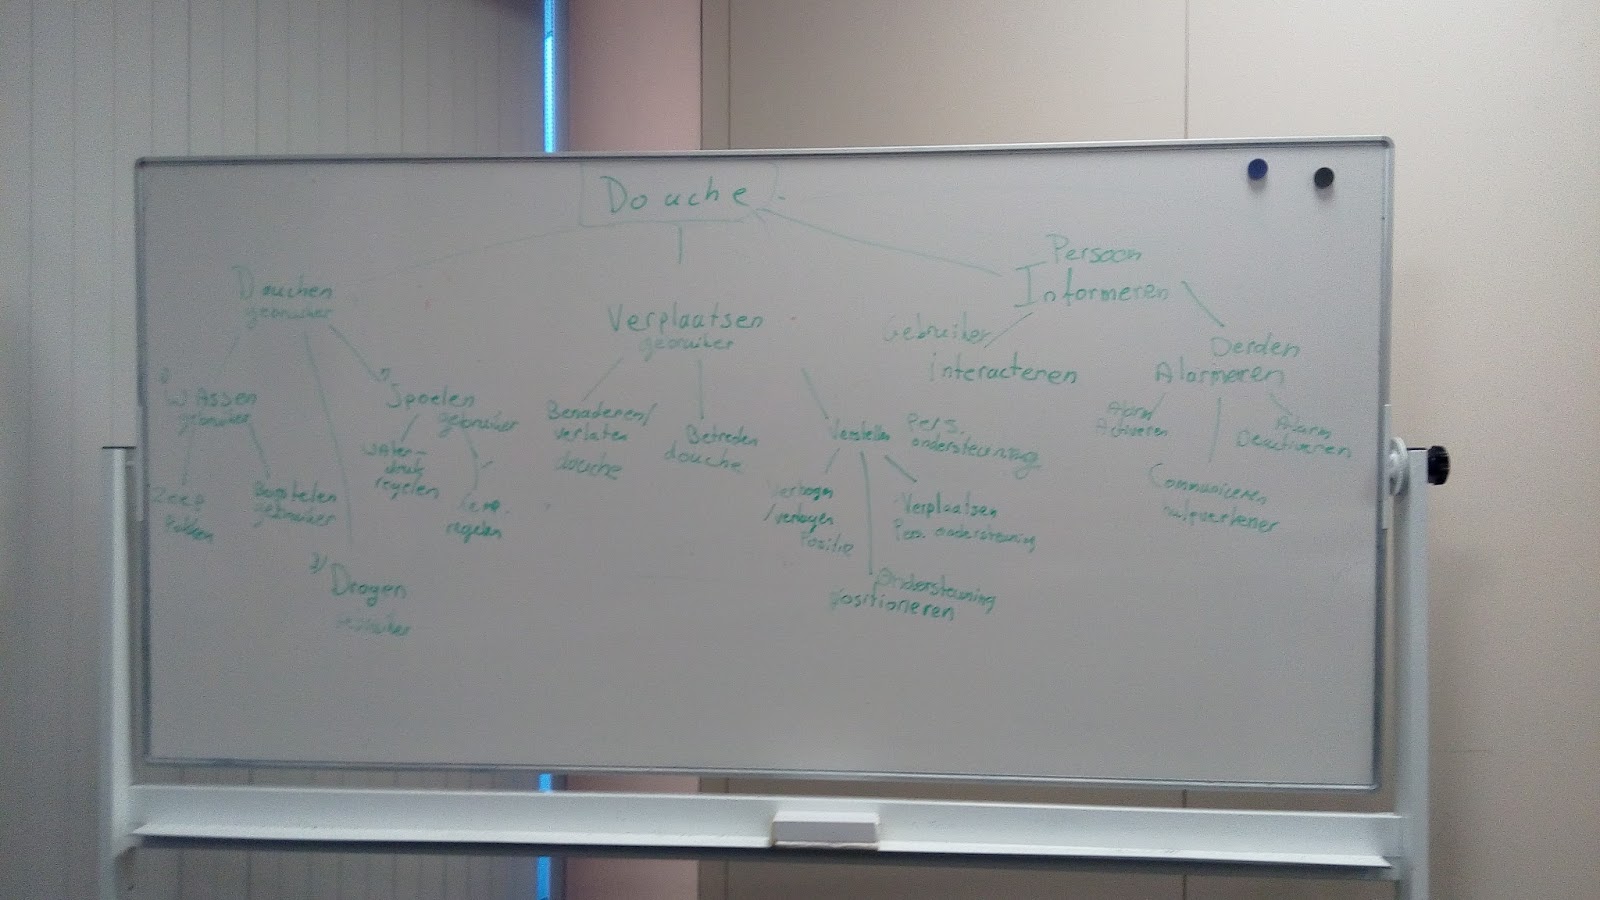 Douche
Douchen
gebruiker
Wassen
gebruiker
Zeep
Pakken
gebruiker
Spoelen
gebruiker
Water-
druk
regelen
regelen
3) Drogen
gebruiker
Verplaatsen
gebruiker
Benaderen/
verlaten
douche
Betreden
douche
Verstellen
Pers.
ondersteuning
Verhogen
/verlagen
Positie
Verplaatsen
Pers. ondersteuning
Ondersteuning
positioneren
Persoon
Informeren
Gebruiker
interacteren
Derden
Alarmeren
Alarm
Activeren
Communiceren
hulpverlener
Alarm
Deactiveren